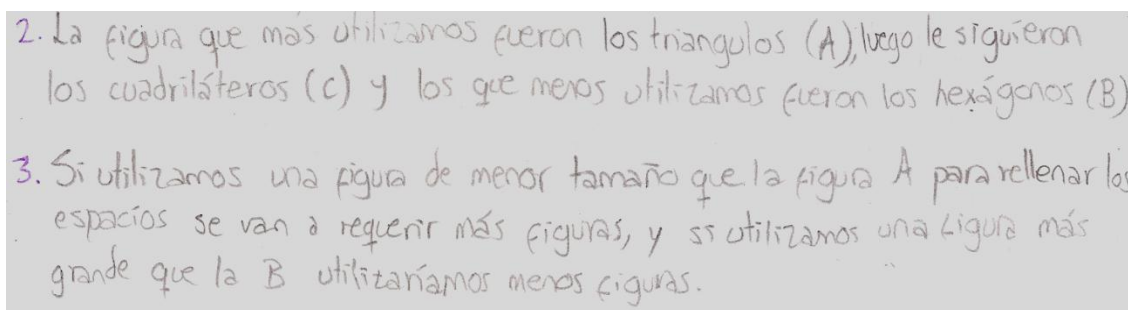 2. La figura que más utilizamos fueron los triangulos (A), luego le siguieron
los cuadriláteros (C) y los que menos utilizamos fueron los hexágonos (B)
3. Si utilizamos una figura de menor tamaño que la figura A para rellenar los
espacios se van a requerir más figuras, y si utilizamos una figura más
grande que la B utilizaríamos menos figuras.